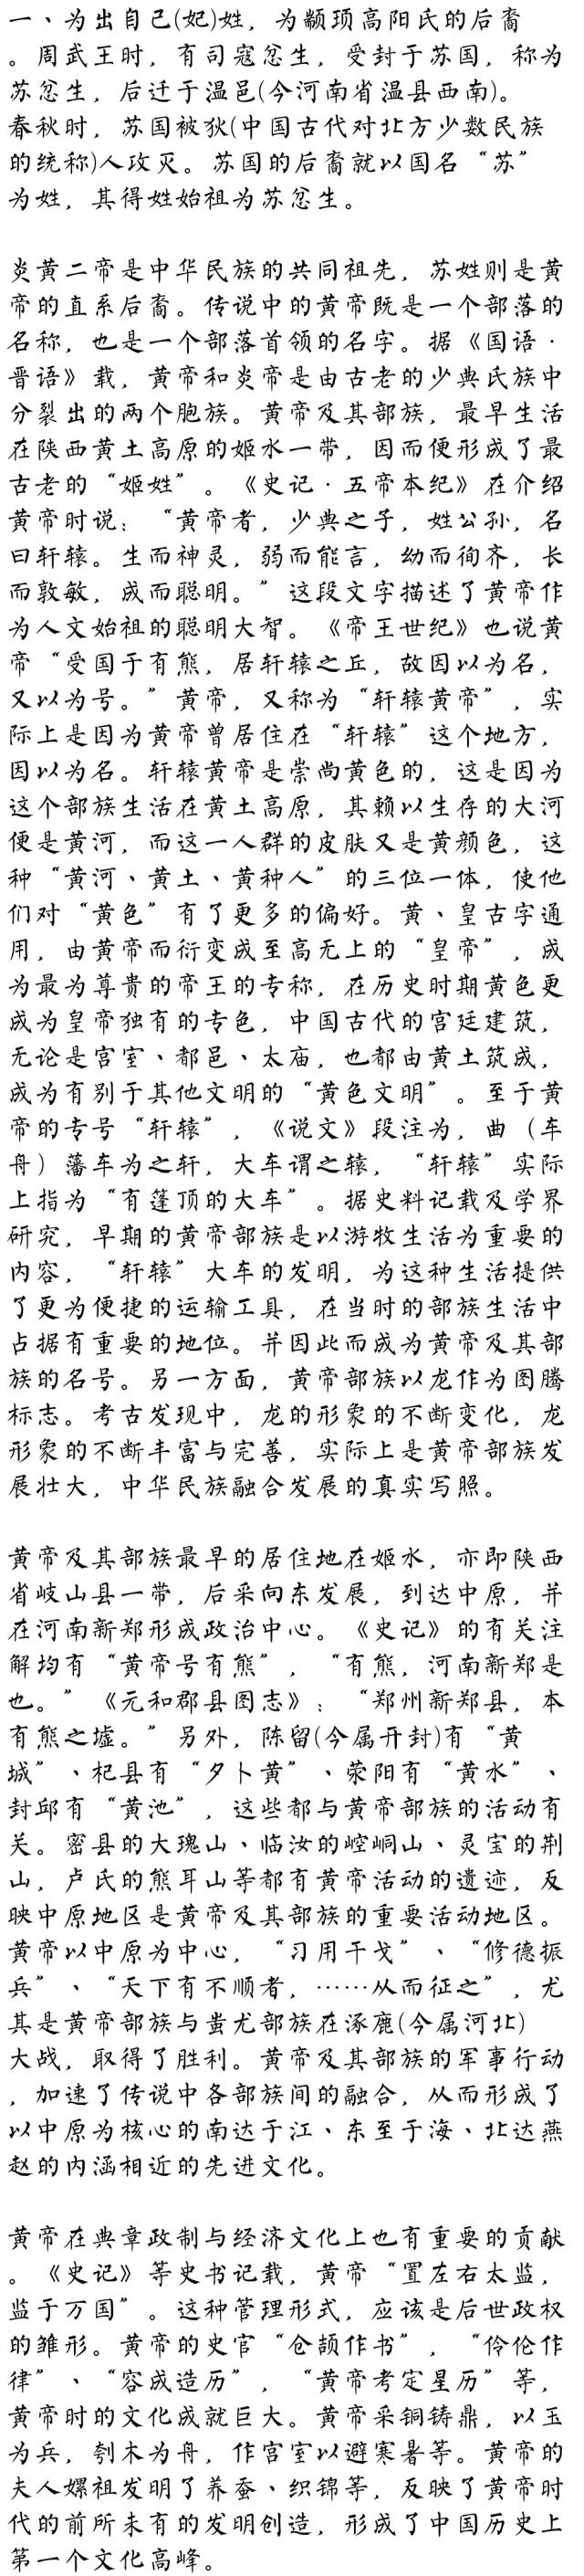 一、为出自己(妃)姓，为颛顼高阳氏的后裔
。周武王时，有司寇忿生，受封于苏国，称为
苏忿生，后迁于温邑(今河南省温县西南)。
春秋时，苏国被狄(中国古代对北方少数民族
的统称)人攻灭。苏国的后裔就以国名“苏”
为姓，其得姓始祖为苏忿生。
炎黄二帝是中华民族的共同祖先，苏姓则是黄
帝的直系后裔。传说中的黄帝既是一个部落的
名称，也是一个部落首领的名字。据《国语·
晋语》载，黄帝和炎帝是由古老的少典氏族中
分裂出的两个胞族。黄帝及其部族，最早生活
在陕西黄土高原的姬水一带，因而便形成了最
古老的“姬姓”。《史记·五帝本纪》在介绍
黄帝时说：“黄帝者，少典之子，姓公孙，名
曰轩辕。生而神灵，弱而能言，幼而徇齐，长
而敦敏，成而聪明。”这段文字描述了黄帝作
为人文始祖的聪明大智。《帝王世纪》也说黄
帝“受国于有熊，居轩辕之丘，故因以为名，
又以为号。”黄帝，又称为“轩辕黄帝”，实
际上是因为黄帝曾居住在“轩辕”这个地方，
因以为名。轩辕黄帝是崇尚黄色的，这是因为
这个部族生活在黄土高原，其赖以生存的大河
便是黄河，而这一人群的皮肤又是黄颜色，这
种“黄河、黄土、黄种人”的三位一体，使他
们对“黄色”有了更多的偏好。黄、皇古字通
用，由黄帝而衍变成至高无上的“皇帝”，成
为最为尊贵的帝王的专称，在历史时期黄色更
成为皇帝独有的专色，中国古代的宫廷建筑，
无论是宫室、都邑、太庙，也都由黄土筑成，
成为有别于其他文明的“黄色文明”。至于黄
帝的专号“轩辕”，《说文》段注为，曲（车
舟）藩车为之轩，大车谓之辕，“轩辕”实际
上指为“有蓬顶的大车”。据史料记载及学界
研究，早期的黄帝部族是以游牧生活为重要的
内容，“轩辕”大车的发明，为这种生活提供
了更为便捷的运输工具，在当时的部族生活中
占据有重要的地位。并因此而成为黄帝及其部
族的名号。另一方面，黄帝部族以龙作为图腾
标志。考古发现中，龙的形象的不断变化，龙
形象的不断丰富与完善，实际上是黄帝部族发
展壮大，中华民族融合发展的真实写照。
黄帝及其部族最早的居住地在姬水，亦即陕西
省岐山县一带，后采向东发展，到达中原，并
在河南新郑形成政治中心。《史记》的有关注
解均有“黄帝号有熊”，“有熊，河南新郑是
也。”《元和郡县图志》：“郑州新郑县，本
有熊之墟。”另外，陈留(今属开封)有“黄
城”、杞县有“夕卜黄”、荥阳有“黄水”、
封邱有“黄池”，这些都与黄帝部族的活动有
关。密县的大瑰山、临汝的崆峒山、灵宝的荆
山，卢氏的熊耳山等都有黄帝活动的遗迹，反
映中原地区是黄帝及其部族的重要活动地区。
黄帝以中原为中心，“习用干戈”、“修德振
兵”、“天下有不顺者，……从而征之”，尤
其是黄帝部族与蚩尤部族在涿鹿(今属河北)
大战，取得了胜利。黄帝及其部族的军事行动
，加速了传说中各部族间的融合，从而形成了
以中原为核心的南达于江、东至于海、北达燕
赵的内涵相近的先进文化。
黄帝在典章政制与经济文化上也有重要的贡献
。《史记》等史书记载，黄帝“置左右太监，
监于万国”。这种管理形式，应该是后世政权
的雏形。黄帝的史官“仓颉作书”，“伶伦作
律”、“容成造历”，“黄帝考定星历”等，
黄帝时的文化成就巨大。黄帝采铜铸鼎，以玉
为兵，刳木为舟，作宫室以避寒暑等。黄帝的
夫人嫘祖发明了养蚕、织锦等，反映了黄帝时
代的前所未有的发明创造，形成了中国历史上
第一个文化高峰。